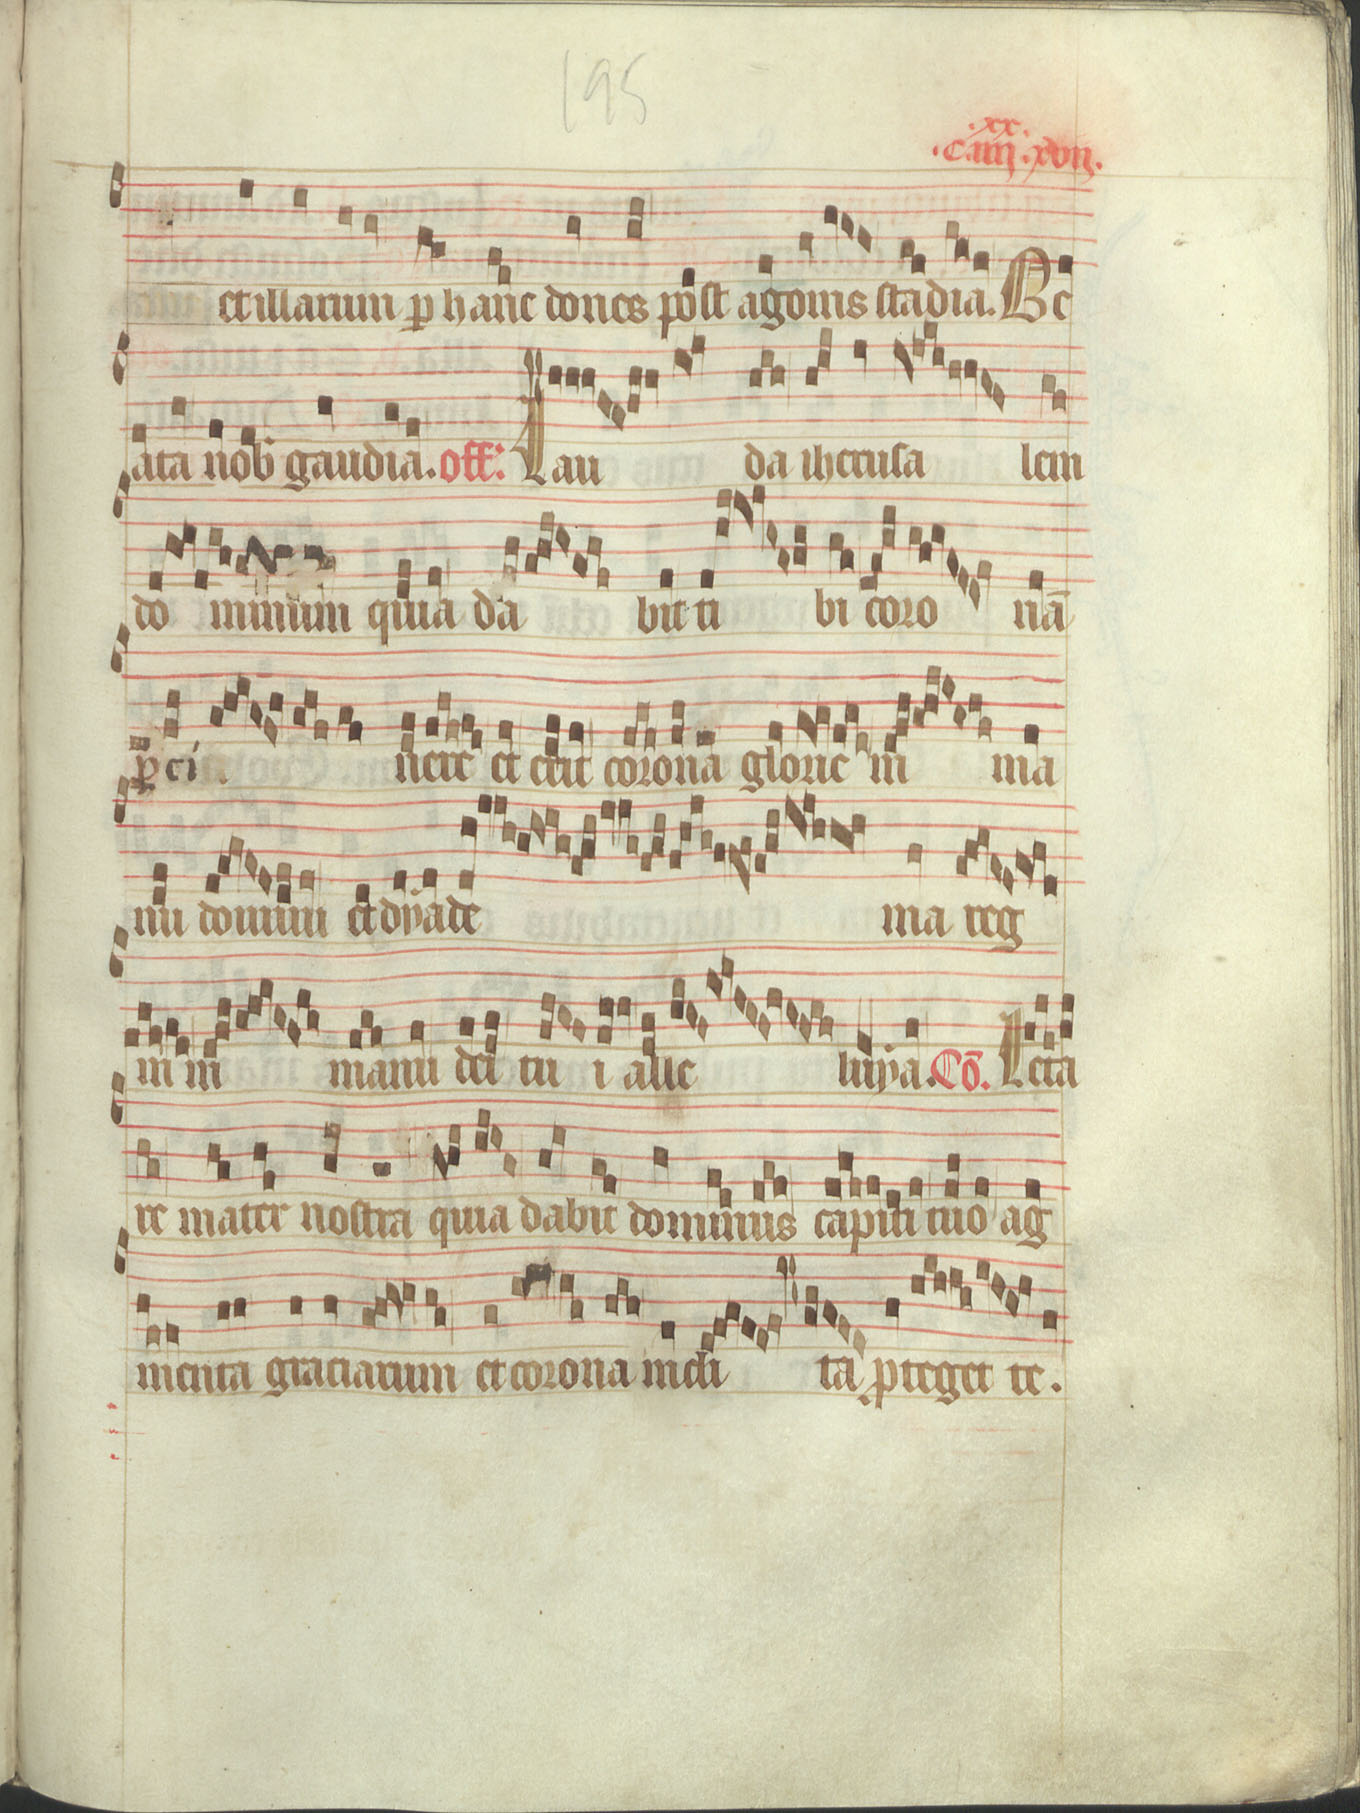 195
.xx.
.C.iiij.xviij.
et illarum p hanc dones post agonis stadia. Be
ata nob gaudia. off. Lau da iherusa lem
do minum quia da bit ti bi coro nā
p̄ci nere et erit corona glorie in ma
nu domini et dyade ma reg
ni in manu dei tu i alle luya. Cō. Leta
re mater nostra quia dabit dominus capiti tuo ag
menta graciarum et corona incli ta p̱teget te.